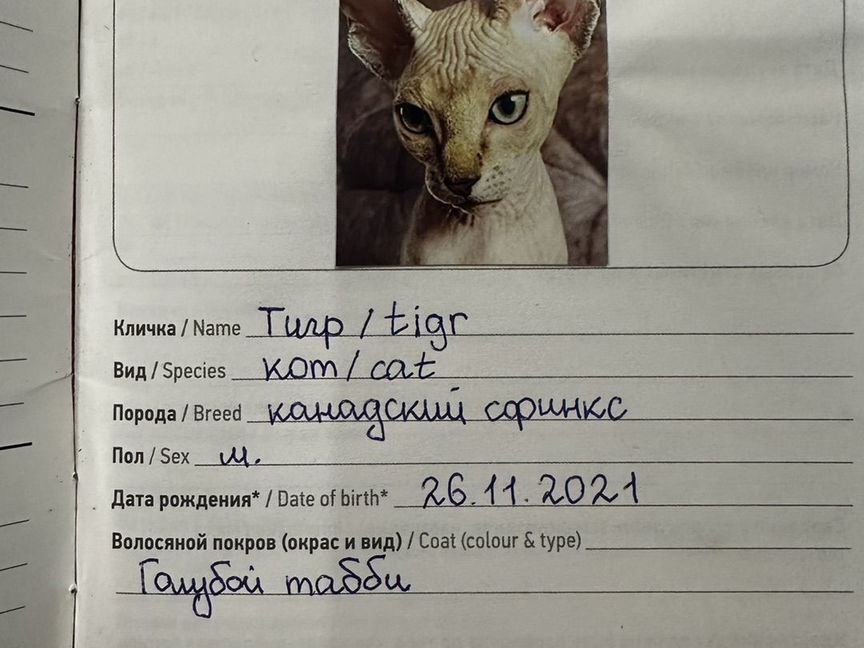 Кличка / Name Тигр / tigr
Вид / Species кот / cat
Порода / Breed канадский сфинкс
Пол / Sex м.
Дата рождения* / Date of birth* 26.11.2021
Волосяной покров (окрас и вид) / Coat (colour & type)
Голубой табби